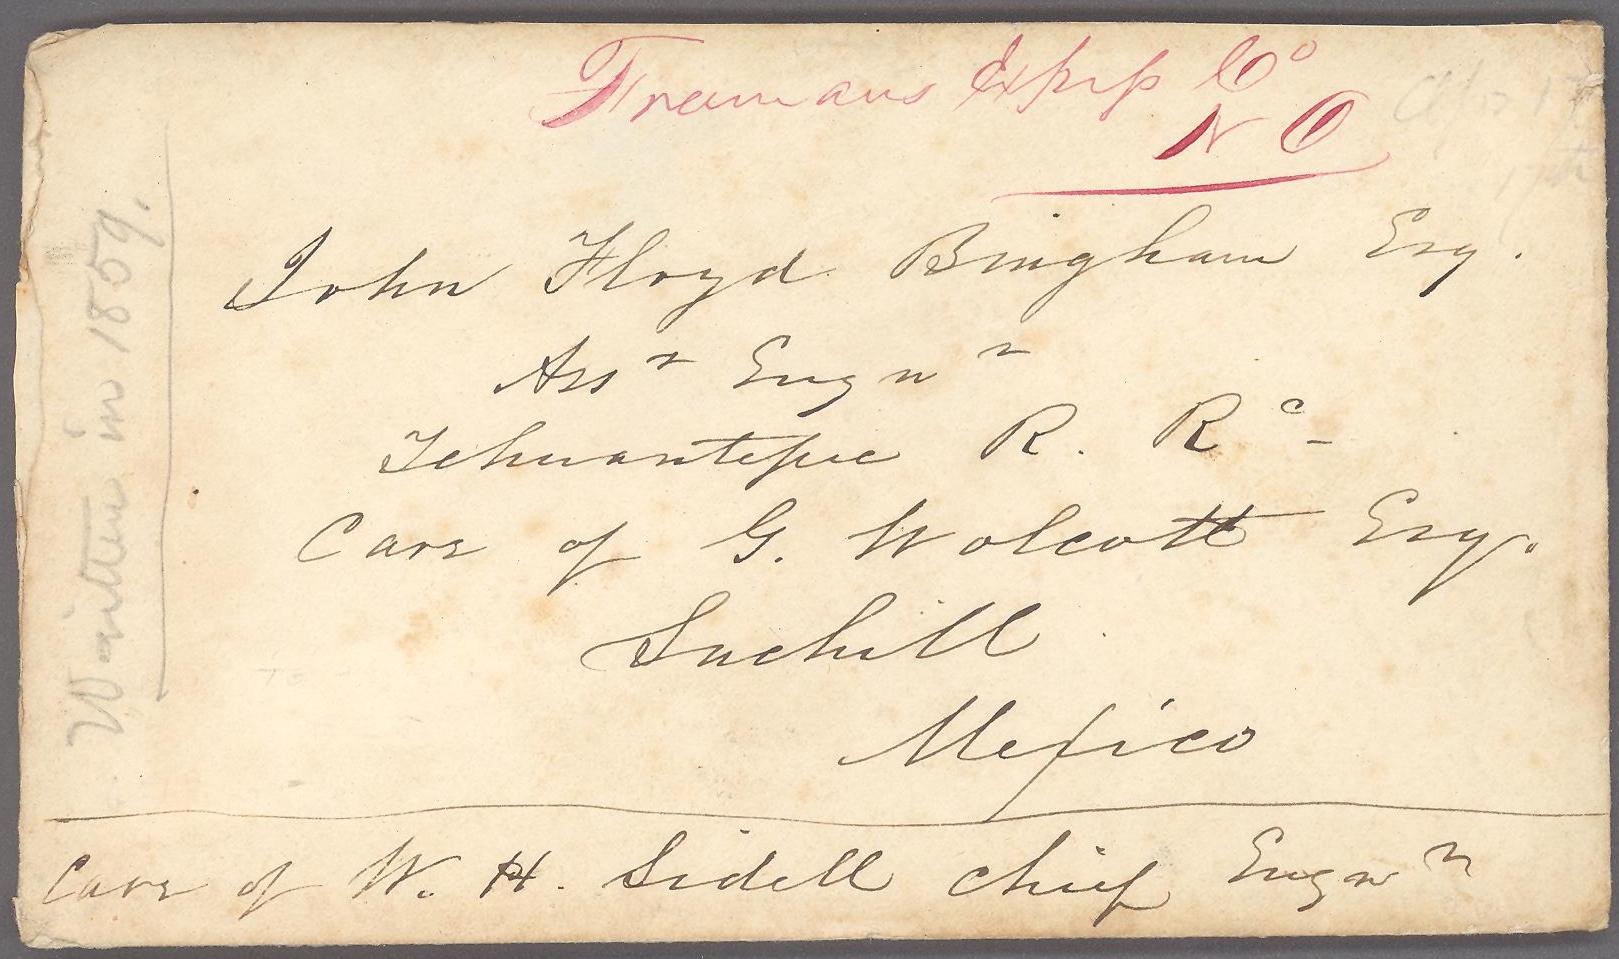 Freemans Exprss Co
N O
John Floyd Bingham Esq.
Assr Engnr
Tehuantepec R. Rc
Care of G. Wolcott Esq.
Suchill
Mexico
Care of W. H. Sidell Chief Engnr
Written in 1859.